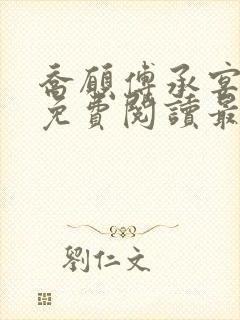 喬願傅承宴
免費閱讀最
劉仁文